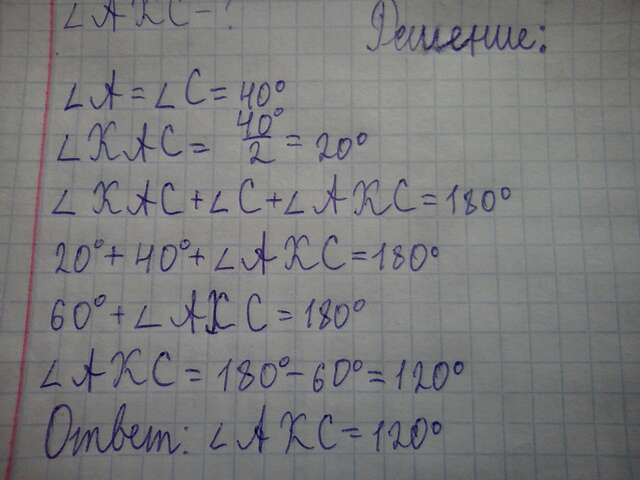 ∠AKC - ?
Решение:
∠A = ∠C = 40°
∠KAC = 40°/2 = 20°
∠KAC + ∠C + ∠AKC = 180°
20° + 40° + ∠AKC = 180°
60° + ∠AKC = 180°
∠AKC = 180° - 60° = 120°
Ответ: ∠AKC = 120°